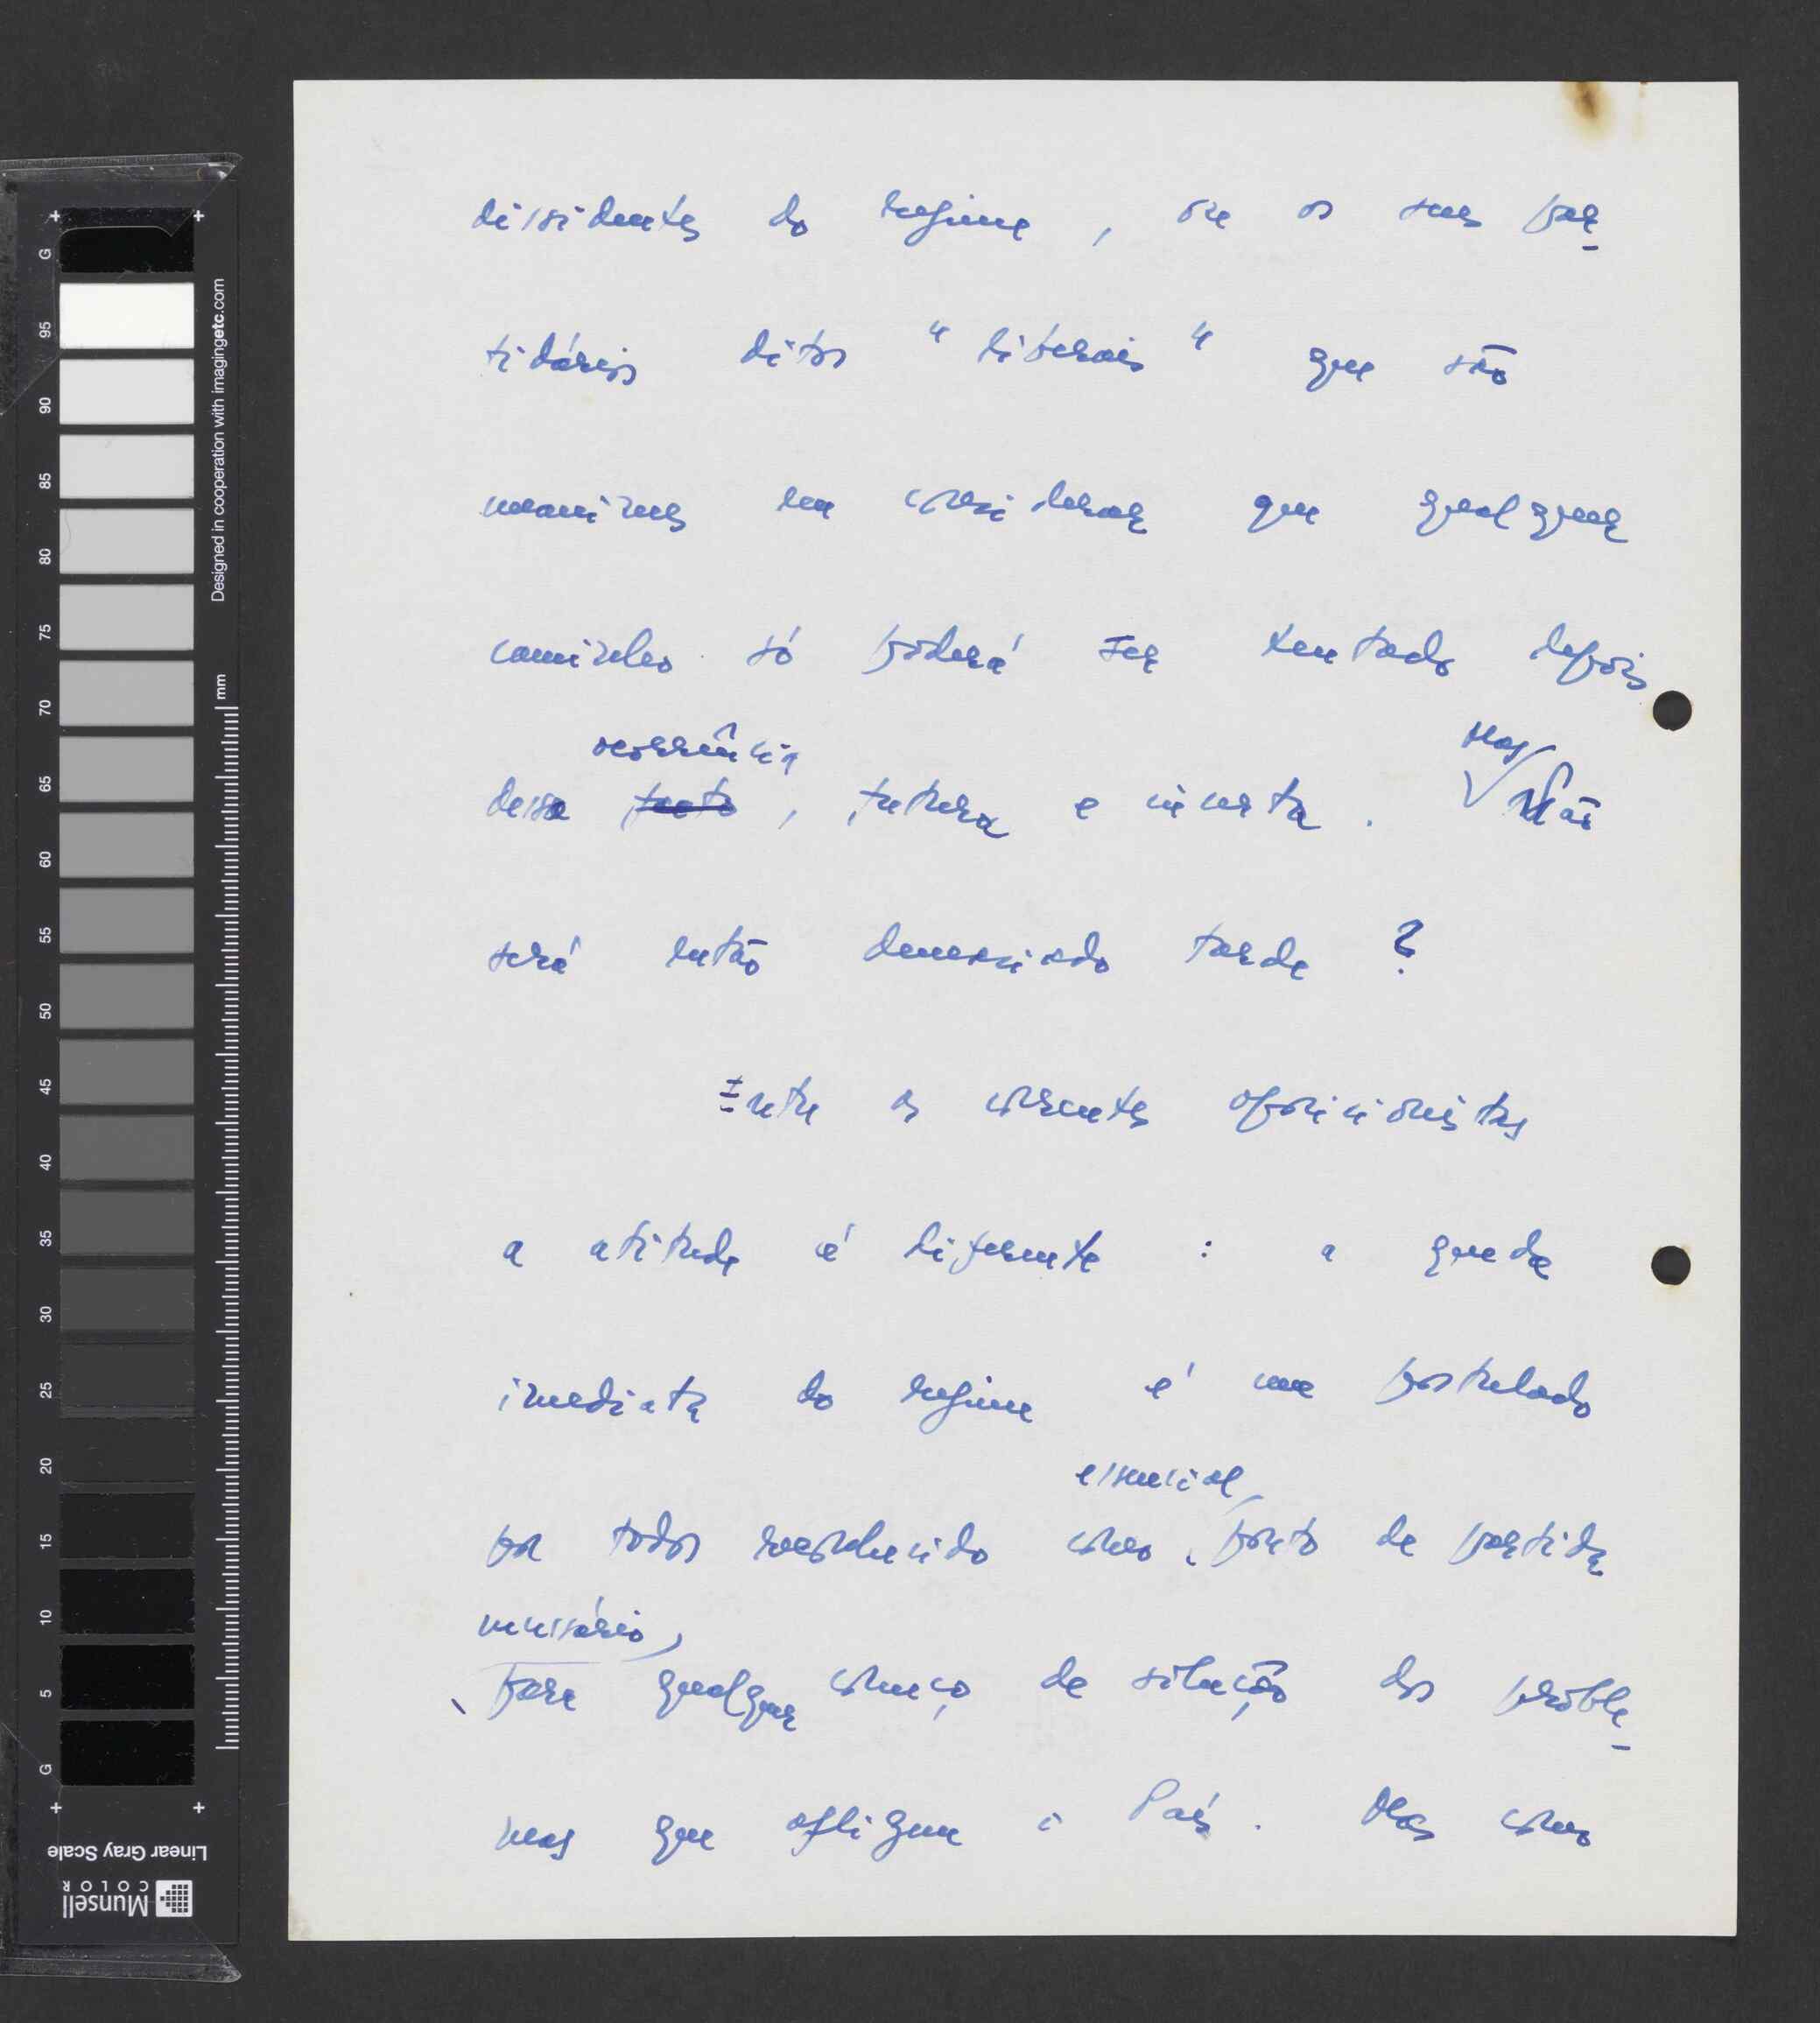 dissidentes do regime, ou os seus par-
tidários ditos "liberais" que são
unanimes em considerar que qualquer
caminho só poderá ser tentado depois
ocorrência
dessa facto, futura e incerta. Mas não
será então demasiado tarde?
Entre as correntes oposicionistas
a atitude é diferente: a queda
imediata do regime é um postulado
essencial,
por todos reconhecido como ponto de partida
necessário,
para qualquer começo de solução dos proble-
mas que afligem o País. Mas como
G 95 90 85 80 75 70 65 60 55 50 45 40 35 30 25 20 15 10 5 G
Designed in cooperation with imagingetc.com
mm
Linear Gray Scale
Munsell
COLOR